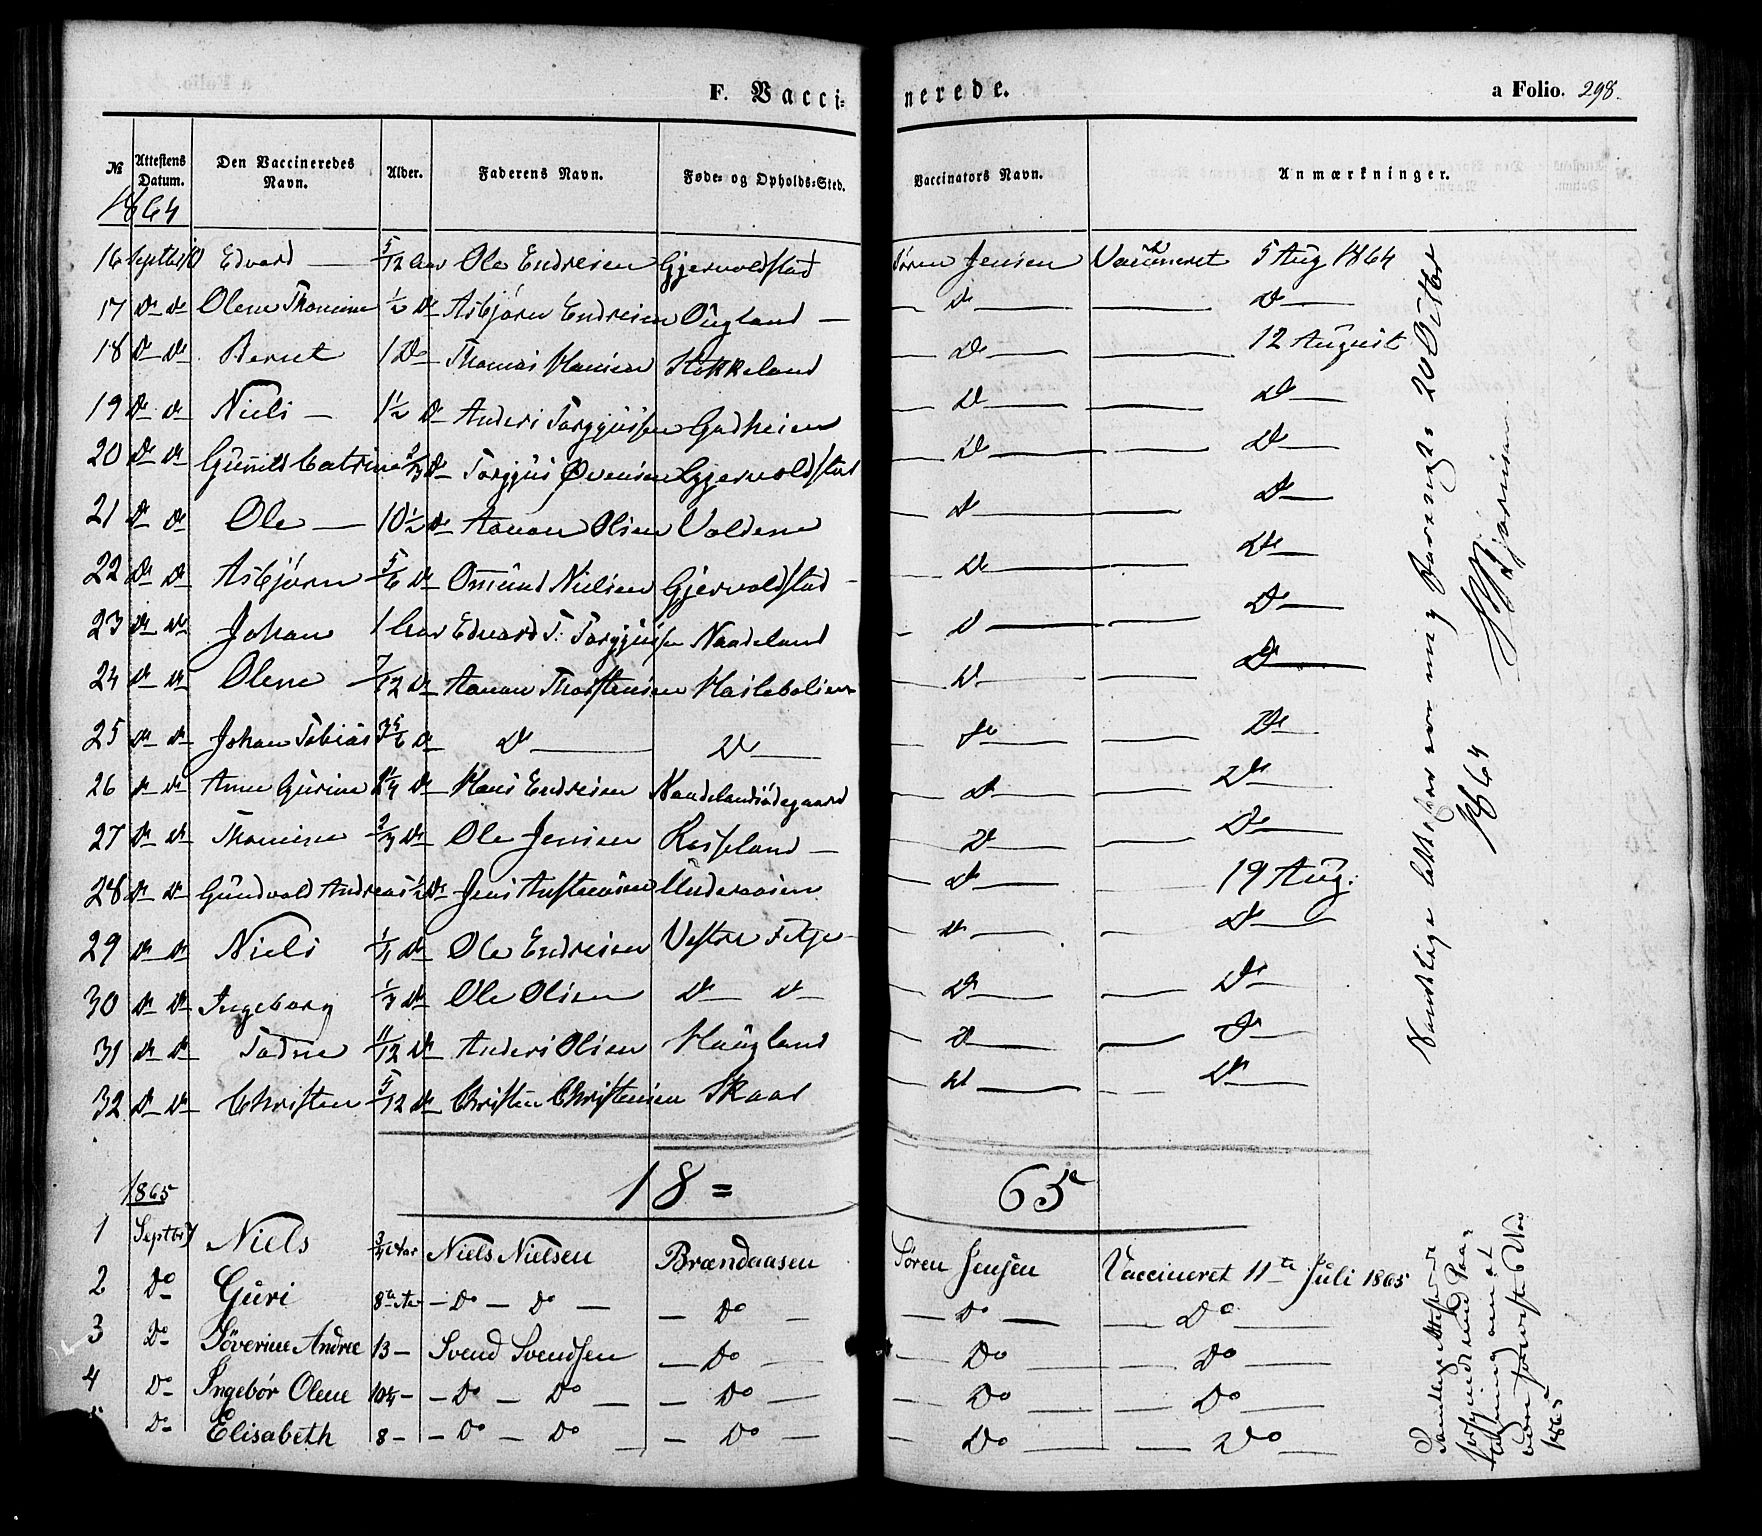 F. Vaccinerede. a Folio. 298.
№ Attestens Datum. Den Vaccineredes Navn. Alder. Faderens Navn. Føde- og Opholds-Sted. Vaccinators Navn. Anmærkninger.
1864
16 Septbr 10 Edvard — 5/12 Aar Ole Endresen Gjervoldstad Søren Jensen Vaccineret 5 Aug 1864
17 Do Do Olene Thomine 1/2 Do Asbjørn Endresen Ougland — — Do — — Do —
18 Do Do Bernt 1 Do Thomas Hansen Stokkeland — Do — — 12 August
19 Do Do Niels — 1 1/2 Do Anders Torggussen Godheien — Do — — Do —
20 Do Do Gunild Catrine 2/3 Do Torggus Øvensen Gjervoldstad — Do — — Do —
21 Do Do Ole — 10 1/2 Do Aanon Olsen Voldene — Do — — Do —
22 Do Do Asbjørn 5/6 Do Omund Nielsen Gjervoldstad — — Do — — Do —
23 Do Do Johan 1 Aar Edvard T. Torggussen Naadeland — Do — — Do —
24 Do Do Olene 7/12 Do Aanon Thorstensen Haslebolien — Do — — Do —
25 Do Do Johan Tobias 3 5/6 Do Do — Do — — Do — — Do —
26 Do Do Anne Gurine Do Hans Endresen Naadelandsødegaard — Do — — Do —
27 Do Do Thomine 2/3 Do Ole Jensen Rosseland — — Do — — Do —
28 Do Do Gundvold Andreas 1/2 Do Jens Austensen Underaasen — Do — — 19 Aug.
29 Do Do Niels Do Ole Endresen Vestre Fidje — — Do — — Do —
30 Do Do Ingeborg 1/3 Do Ole Olsen Do — Do — — Do — — Do —
31 Do Do Tadne 11/12 Do Anders Olsen Haugland — Do — — Do —
32 Do Do Christen 5/12 Do Christen Christensen Skaar — Do — — Do —
Samtlige Attester foreviist mig 20 Octbr
1864 Bjørnsen
18 = 65
1865
1 Septbr 7 Niels 3/4 Aar Niels Nielsen Brændaasen Søren Jensen Vaccineret 11te Juli 1865
2 Do Guri 8 Aar — Do — Do — — Do — — Do — — Do —
3 Do Søverine Andree 13 — Svend Svendsen — Do — — Do — — Do —
4 Do Ingebør Olene 10 1/4 — — Do — Do — — Do — — Do — — Do —
5 Do Elisabeth 8 — — Do — Do — — Do — — Do — — Do —
Samtlige Attester
1865